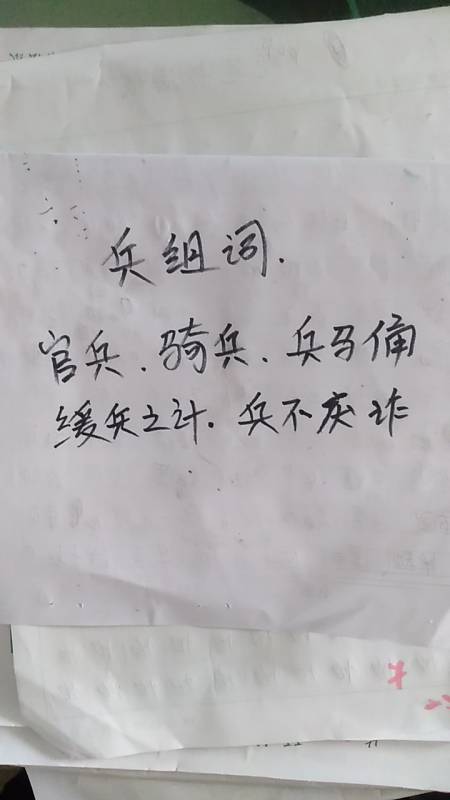 兵组词.
官兵.骑兵、兵马俑
缓兵之计.兵不厌诈